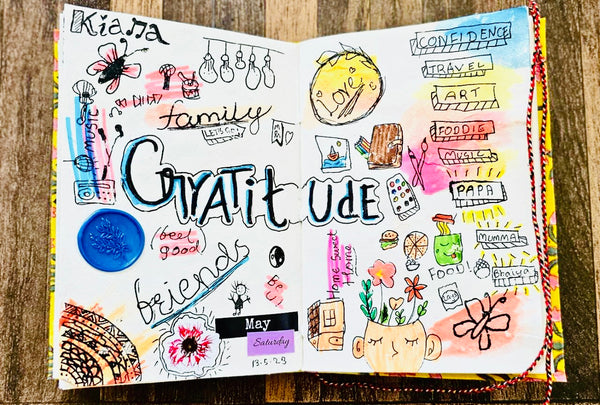 Kiana
family
LET'S GO
MUSIC
GRATITUDE
feel
good
friends
May
Saturday
13.5.23
Love
Home Sweet
Home
CONFIDENCE
TRAVEL
ART
FOODIE
MUSIC
PAPA
MUMMA
Bhaiya
FOOD!